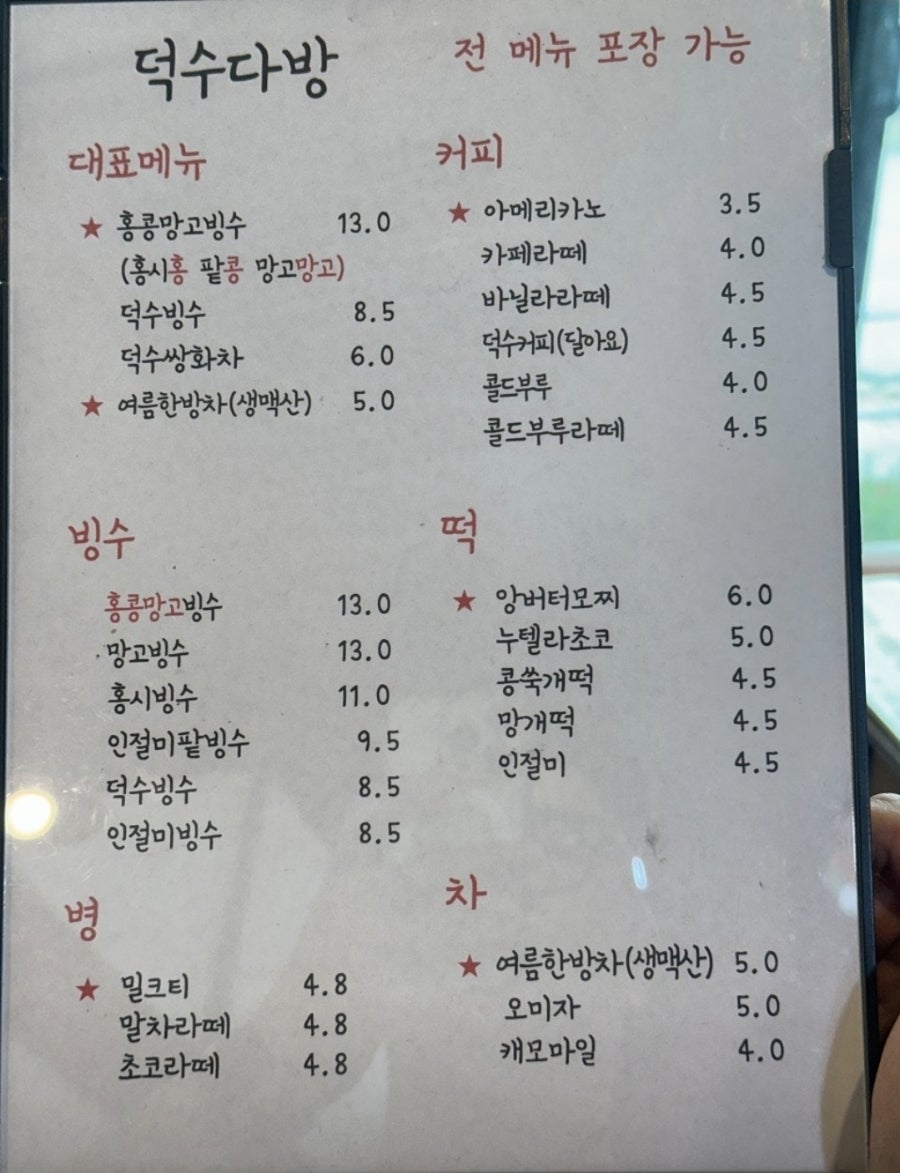 덕수다방
전 메뉴 포장 가능
대표메뉴
★ 홍콩망고빙수 13.0
(홍시홍 팥콩 망고망고)
덕수빙수 8.5
덕수쌍화차 6.0
★ 여름한방차(생맥산) 5.0
커피
★ 아메리카노 3.5
카페라떼 4.0
바닐라라떼 4.5
덕수커피(달아요) 4.5
콜드부루 4.0
콜드부루라떼 4.5
빙수
홍콩망고빙수 13.0
망고빙수 13.0
홍시빙수 11.0
인절미팥빙수 9.5
덕수빙수 8.5
인절미빙수 8.5
떡
★ 앙버터모찌 6.0
누텔라초코 5.0
콩쑥개떡 4.5
망개떡 4.5
인절미 4.5
병
★ 밀크티 4.8
말차라떼 4.8
초코라떼 4.8
차
★ 여름한방차(생맥산) 5.0
오미자 5.0
캐모마일 4.0